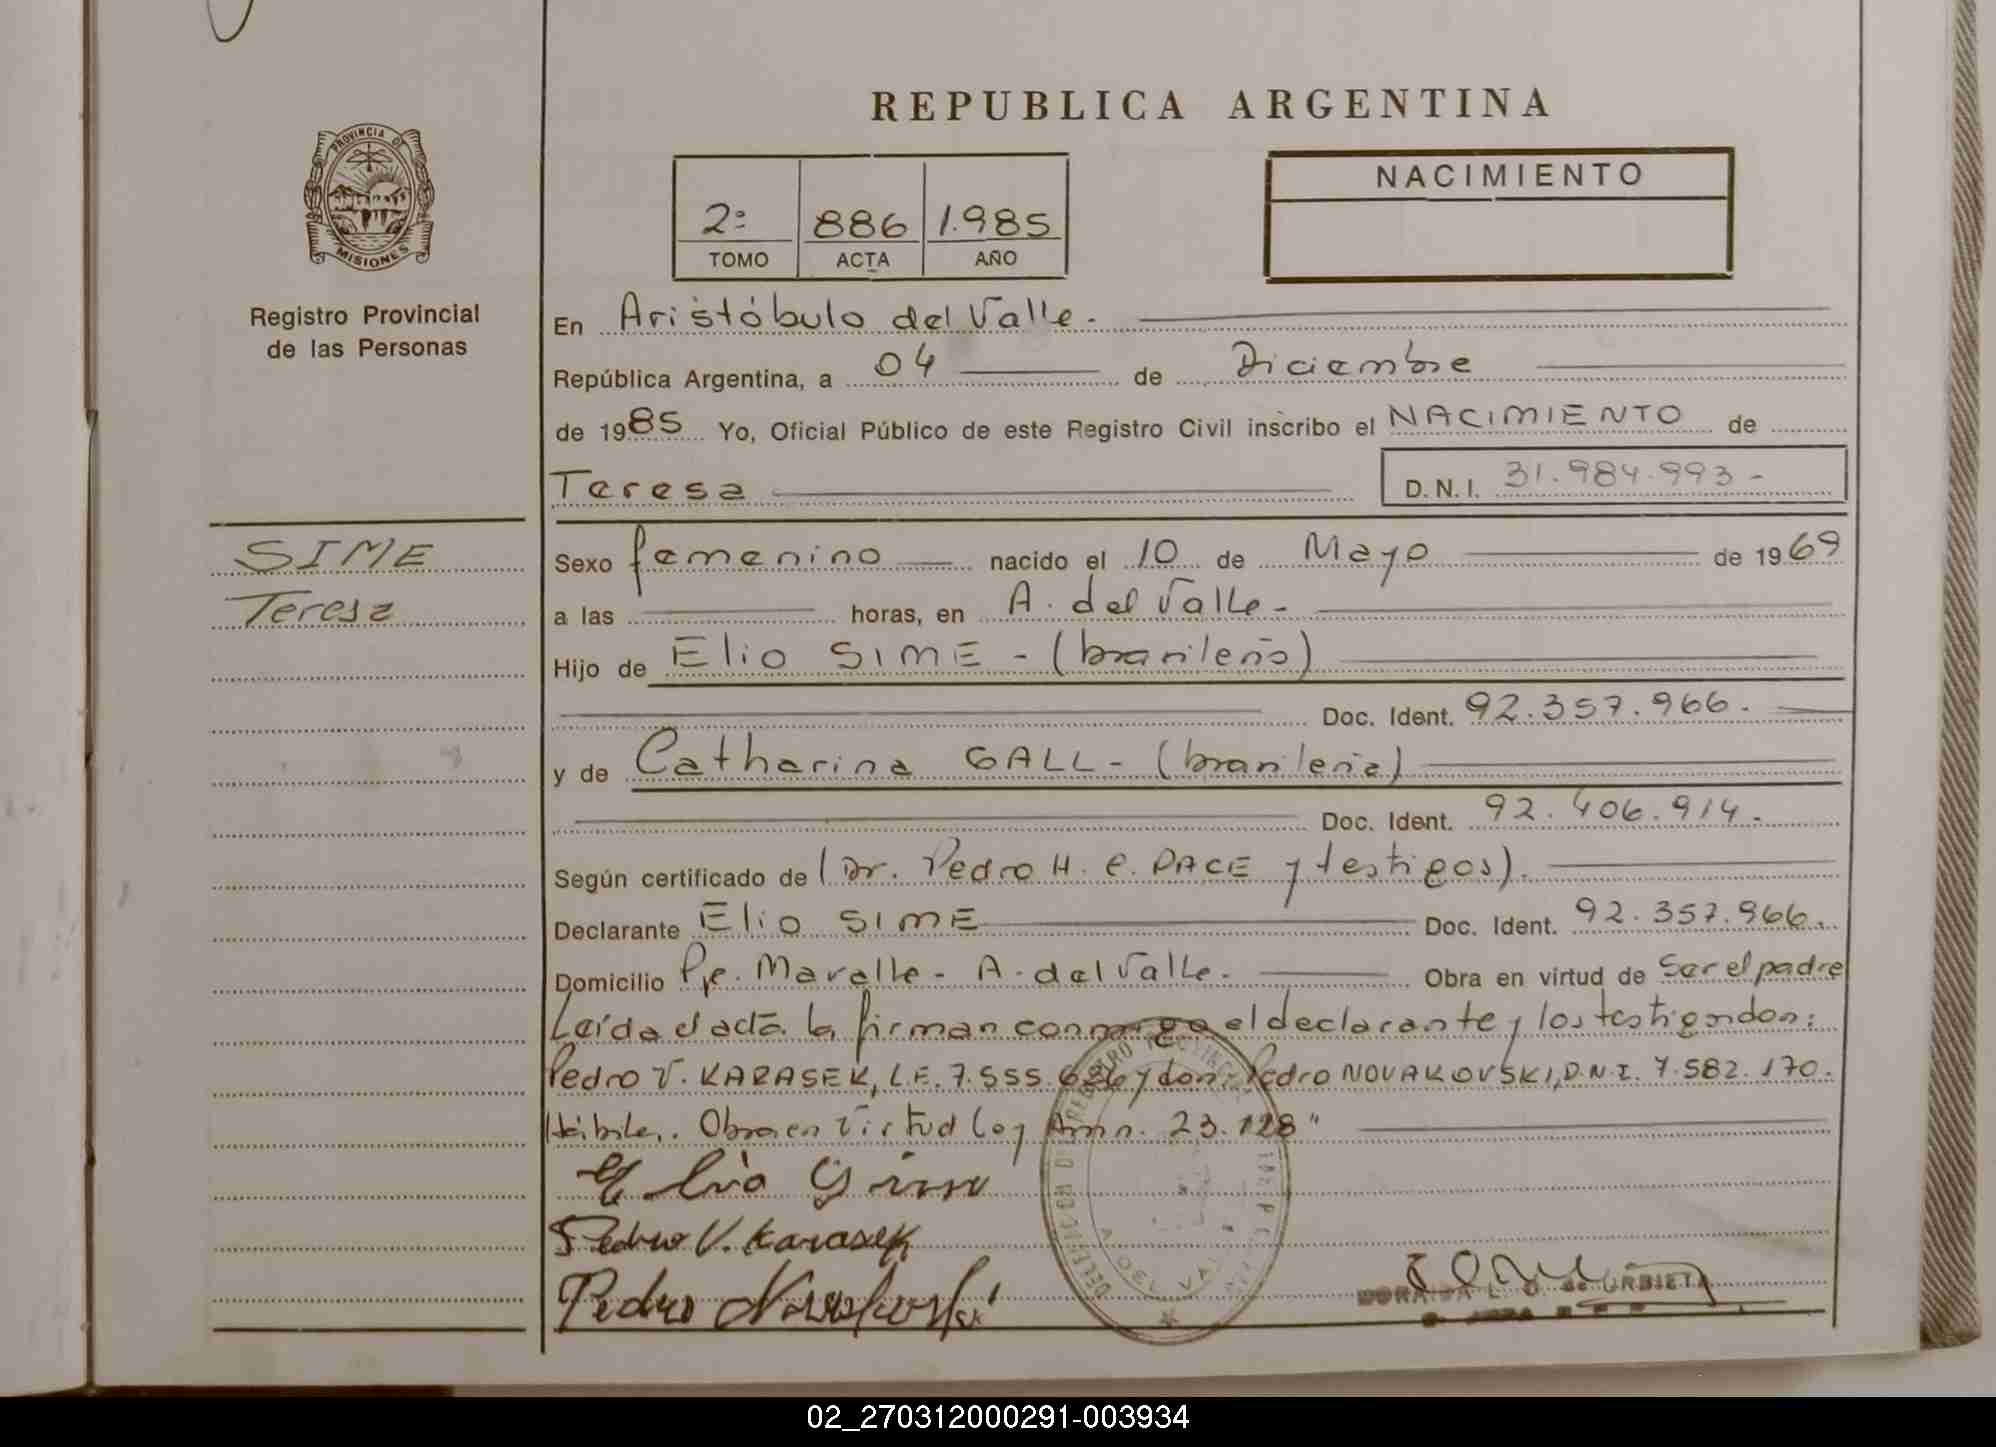 REPUBLICA ARGENTINA
PROVINCIA DE
MISIONES
Registro Provincial
de las Personas
2º 886 1.985
TOMO ACTA AÑO
NACIMIENTO
En Aristóbulo del Valle.
República Argentina, a 04 de Diciembre
de 1985 Yo, Oficial Público de este Registro Civil inscribo el NACIMIENTO de
Teresa D.N.I. 31.984.993-
SIME
Teresa
Sexo femenino nacido el 10 de Mayo de 1969
a las horas, en A. del Valle-
Hijo de Elio SIME - (brasileño)
Doc. Ident. 92.357.966.
y de Catharina GALL - (brasileña)
Doc. Ident. 92.406.914.
Según certificado de (Dr. Pedro H. C. PACE y testigos).
Declarante Elio SIME Doc. Ident. 92.357.966.
Domicilio Pje. Maralle - A. del Valle. Obra en virtud de Ser el padre
Leída el acta la firman conmigo el declarante y los testigos don:
Pedro V. KARASEK, L.E. 7.555.626 y don: Pedro NOVAKOVSKI, D.N.I. 7.582.170.
Hábiles. Obra en Virtud Ley Amn. 23.128"
Elio Sime
Pedro V. Karasek
Pedro Novakovski
A DEL VALLE
L. O. de URBIETA
02_270312000291-003934